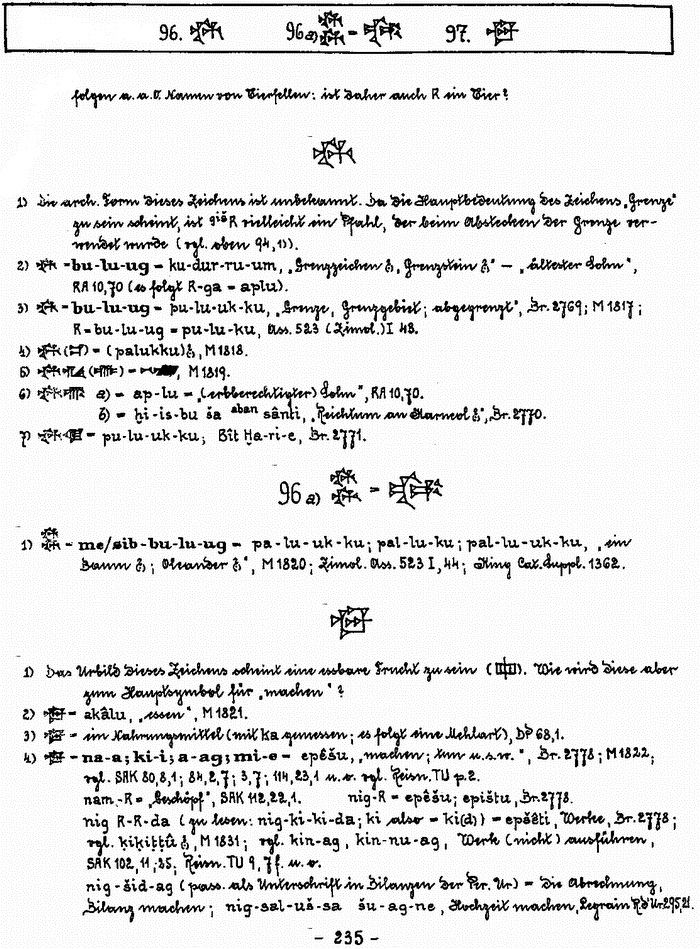 96. 96a) = 97.
folgen a. a. O. Namen von Tierfellen: ist daher auch R ein Tier?
1) Die arch. Form dieses Zeichens ist unbekannt. Da die Hauptbedeutung des Zeichens „Grenze“
zu sein scheint, ist gišR vielleicht ein Pfahl, der beim Abstecken der Grenze ver-
wendet wurde (vgl. oben 94,1)).
2) = bu-lu-ug = ku-dur-ru-um, „Grenzzeichen, Grenzstein“ — „ältester Sohn“,
RA 10,70 (es folgt R-ga = aplu).
3) = bu-lu-ug = pu-luk-ku, „Grenze, Grenzgebiet; abgegrenzt“, Br. 2769; M 1817;
R-bu-lu-ug = pu-lu-ku, Ass. 523 (Zimol.) I 43.
4) = (palukku), M 1818.
5) = , M 1819.
6) a) = ap-lu = „(erbberechtigter) Sohn“, RA 10,70.
b) = ḫi-is-bu ša aban sânti, „Reichtum an Karneol“, Br. 2770.
7) = pu-lu-uk-ku; Bît Ḫa-ri-e, Br. 2771.
96 a) =
1) = me/sib-bu-lu-ug = pa-lu-uk-ku; pal-lu-ku; pal-lu-uk-ku, „ein
Baum; Oleander“, M 1820; Zimol. Ass. 523 I, 44; King Cat. Suppl. 1362.
1) Das Urbild dieses Zeichens scheint eine essbare Frucht zu sein ( ). Wie wird diese aber
zum Hauptsymbol für „machen“?
2) = akâlu, „essen“, M 1821.
3) = ein Nahrungsmittel (mit ka gemessen; es folgt eine Mehlart), DP 68,1.
4) = na-a; ki-i; a-ag; mi-e = epêšu, „machen; tun u.s.w.“, Br. 2778; M 1822;
vgl. SAK 80,8,1; 84,2,7; 3,7; 114,23,1 u. o. vgl. Reisn. TU p. 2.
nam-R = „Geschöpf“, SAK 112,22,1. nig-R = epêšu; epištu, Br. 2778.
nig R-R-da (zu lesen: nig-ki-ki-da; ki also = ki(d)) = epšêti, Werke, Br. 2778;
vgl. kikiṭṭû, M 1831; vgl. kin-ag, kin-nu-ag, Werk (nicht) ausführen,
SAK 102, 11; 35; Reisn. TU 9, 7f. u. o.
nig-šid-ag (pass. als Unterschrift in Bilanzen der Per. Ur) = die Abrechnung,
Bilanz machen; nig-sal-uš-sa šu-ag-ne, Hochzeit machen, Legrain R.d'Ur 295,21.
- 235 -